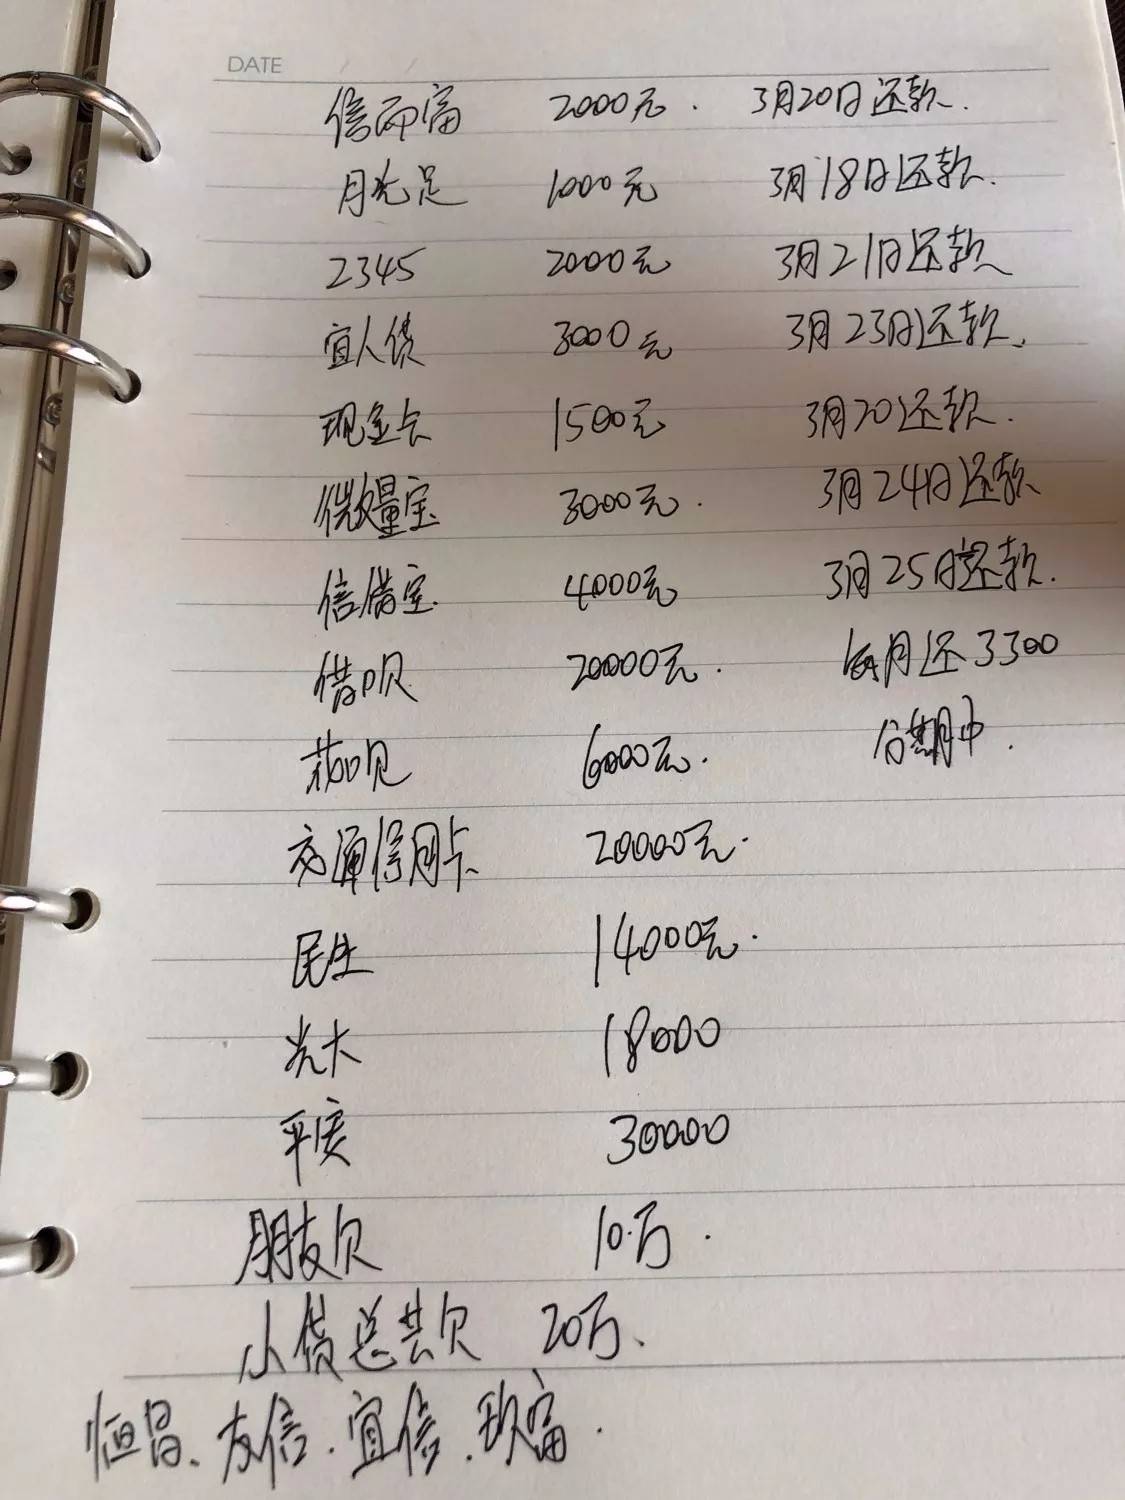 DATE / /
信而富 2000元. 3月20日还款.
月光足 1000元 3月18日还款.
2345 2000元 3月21日还款
宜人贷 3000元 3月23日还款.
现金卡 1500元 3月20还款.
微量宝 3000元. 3月24日还款
信借宝 4000元 3月25日还款.
借呗 20000元. 每月还3300
花呗 6000元. 分期中.
交通信用卡 20000元.
民生 14000元.
光大 18000
平安 30000
朋友欠 10万.
小贷总共欠 20万.
恒昌、友信.宜信.玖富.